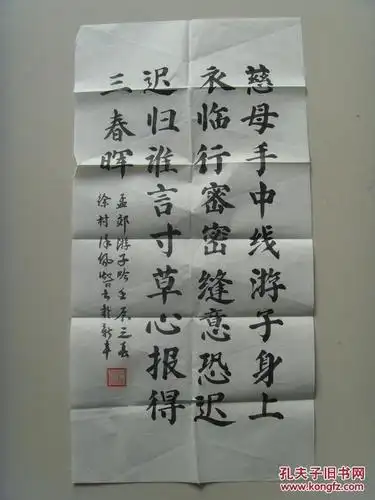 慈母手中线游子身上
衣临行密密缝意恐迟
迟归谁言寸草心报得
三春晖
孟郊游子吟壬辰之春
徐村
孔夫子旧书网
www.kongfz.com